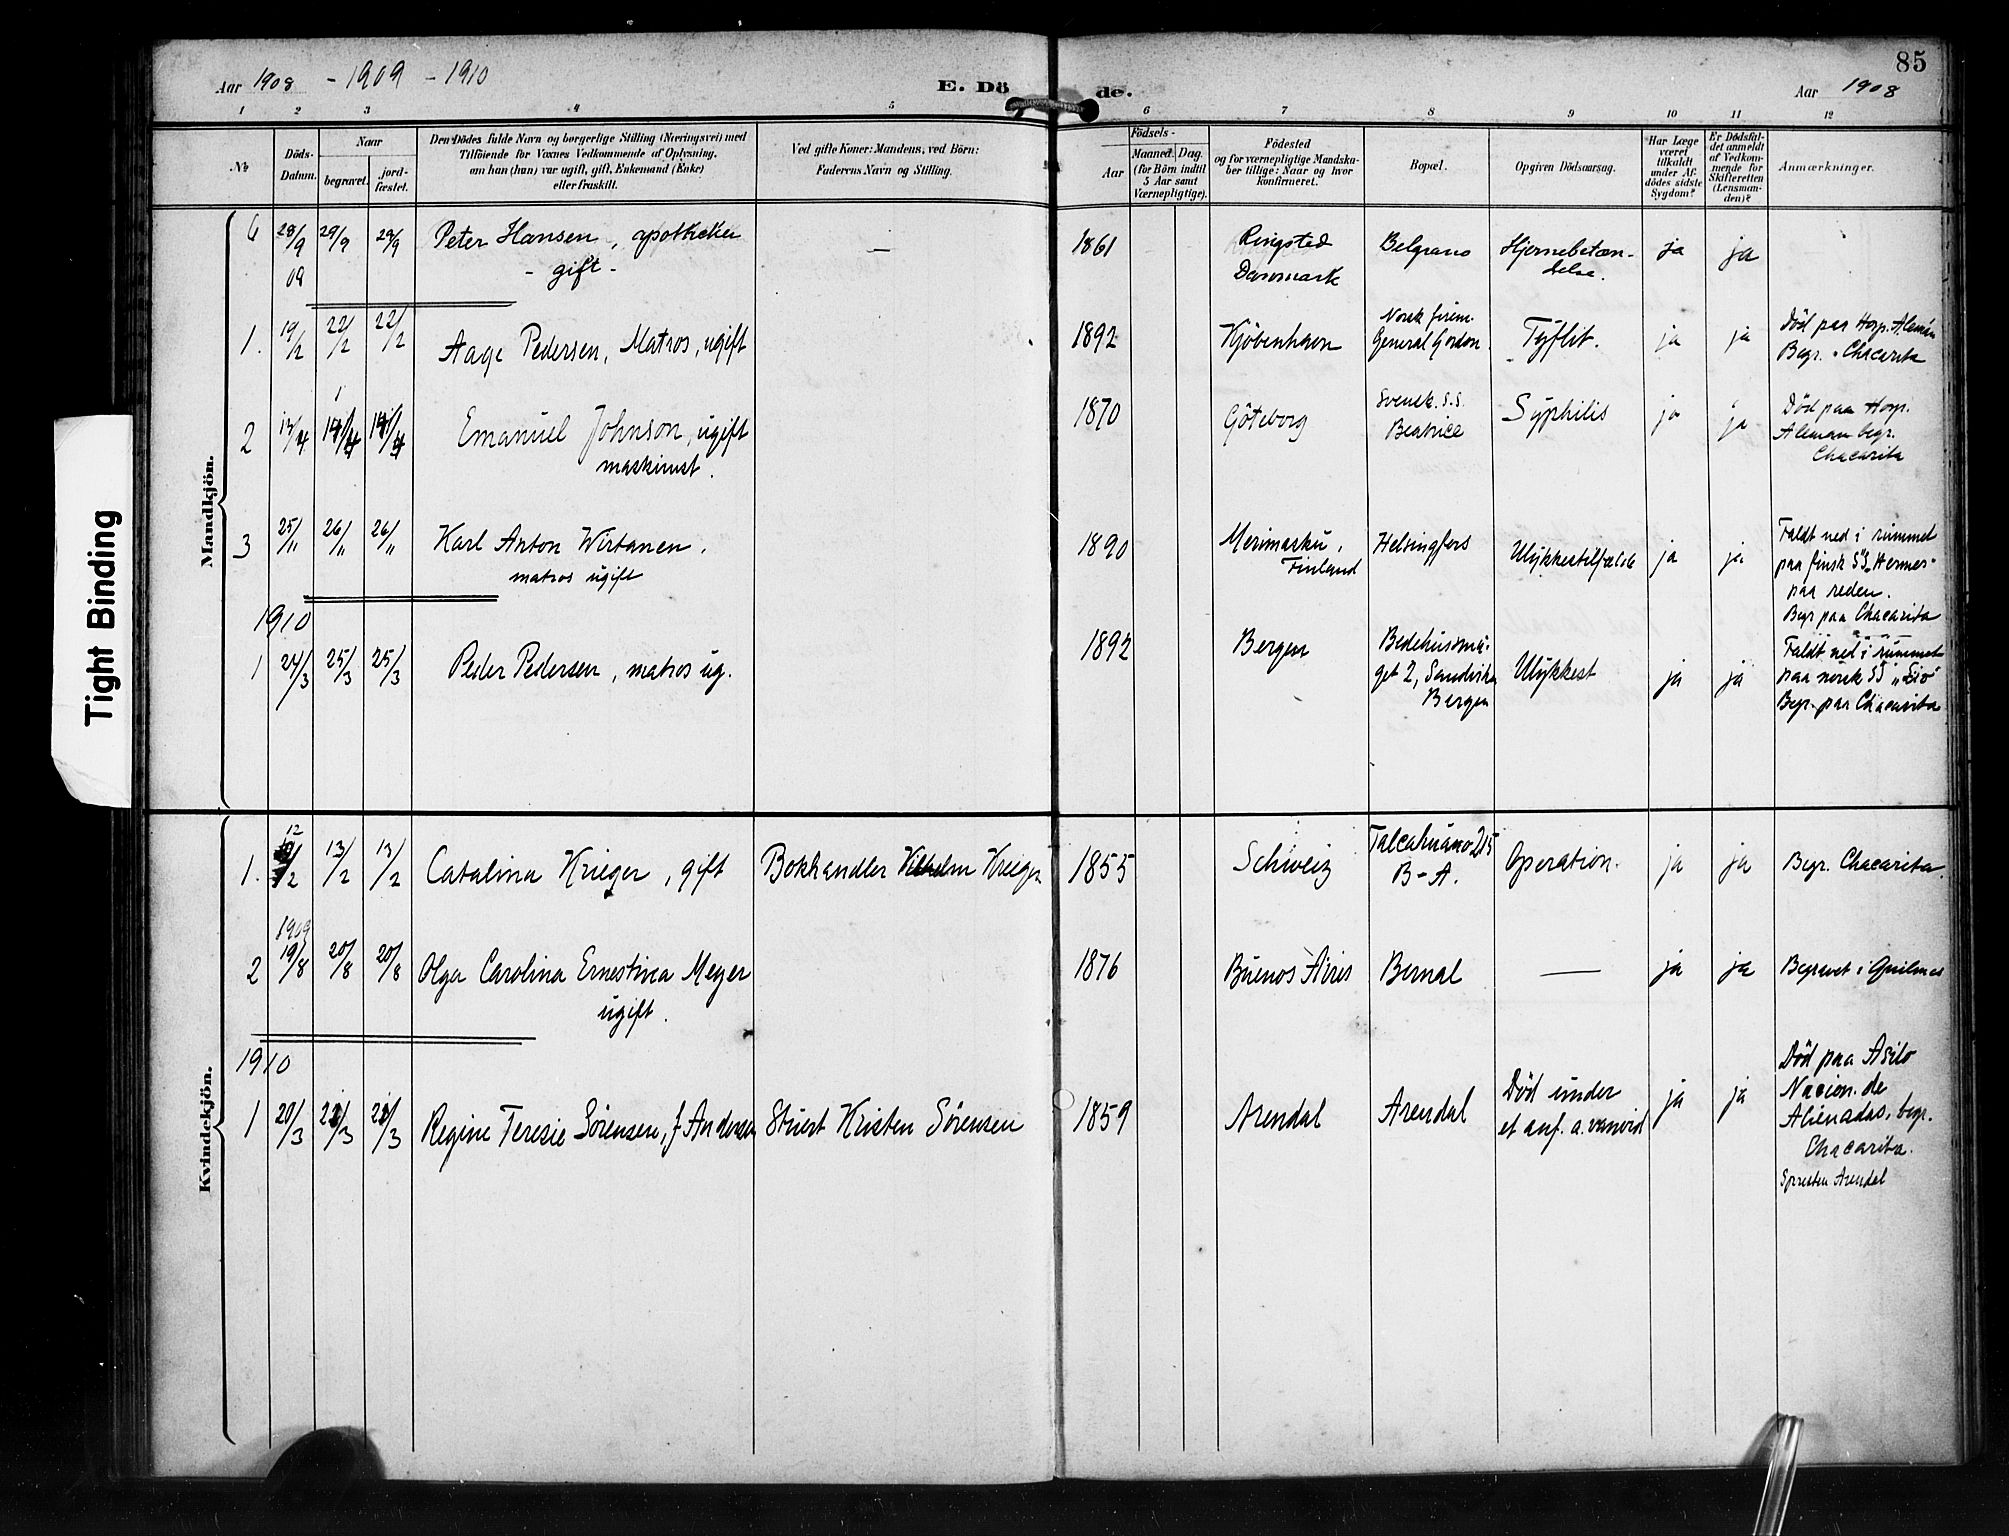 85
Aar 1908 - 1909 - 1910
E. Dö de.
Aar 1908
1 2 3 4 5 6 7 8 9 10 11 12
No
Döds-
Datum.
Naar
begravet.
jord-
fæstet.
Den Dödes fulde Navn og borgerlige Stilling (Næringsvei) med
Tilföiende for Voxnes Vedkommende af Oplysning,
om han (hun) var ugift, gift, Enkemand (Enke)
eller fraskilt.
Ved gifte Koner: Mandens, ved Börn:
Faderens Navn og Stilling.
Födsels-
Aar
Maaned. Dag.
(for Börn indtil
5 Aar samt
Værnepligtige).
Födested
og for værnepligtige Mandska-
ber tillige: Naar og hvor
konfirmeret.
Bopæl.
Opgiven Dödsaarsag.
Har Læge
været
tilkaldt
under Af-
dödes sidste
Sygdom?
Er Dödsfal-
det anmeldt
af Vedkom-
mende for
Skifteretten
(Lensman-
den)?
Anmærkninger.
Mandkjön.
6 28/9 09 29/9 29/9 Peter Hansen, apotheker
- gift -
—
1861
Ringsted
Danmark
Belgrano
Hjernebetæn-
delse.
ja ja
1. 19/2 22/2 22/2 Aage Pedersen, Matros, ugift
1892
Kjöbenhavn
Norsk firem.
General Gordon.
Tyflit.
ja ja
Död paa Hosp. Alemán
Begr. Chacarita
2 13/4 14/4 14/4 Emanuel Johnson, ugift
maskinist.
1870
Göteborg
Svensk. S.S.
Beatrice
Syphilis
ja ja
Död paa Hosp.
Aleman begr.
Chacarita
3 25/11 26/11 26/11 Karl Anton Wirtanen.
matros ugift
1890
Merimasku,
Finland
Helsingfors
Ulykkestilfælde
ja ja
Faldt ned i rummet
paa finsk SS „Hermes"
paa reden.
Begr paa Chacarita
1910
1 24/3 25/3 25/3 Peder Pedersen, matros ug.
1892
Bergen
Bedehussmu-
get 2, Sandviken
Bergen
Ulykkest
ja ja
Faldt ned i rummet
paa norsk SS
Begr. paa Chacarita
Kvindekjön.
1. 12/2 13/2 13/2 Catalina Krieger, gift
Bokhandler Vilhelm Krieger
1855
Schweiz
Talcahuano 215
B-A.
Operation.
ja ja
Begr. Chacarita.
1909
2 19/8 20/8 20/8 Olga Carolina Ernestina Meyer
ugift.
1876
Buenos Aires
Bernal
—
ja ja
Begravet i Quilmes
1910
1 20/3 21/3 21/3 Regine Teresie Sørensen, f Andersen
Stuert Kristen Sørensen
1859
Arendal
Arendal
Död under
et anf. a. vanvid
ja ja
Död paa Asilo
Nacion. de
Alienadas, begr.
Chacarita.
Spresten Arendal
Tight Binding